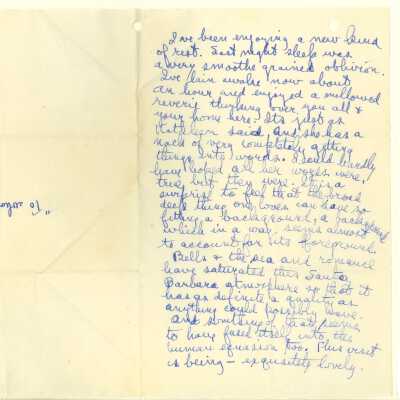 I've been enjoying a new kind
of rest. Last night sleep was
a very smoothe grained oblivion.
I've lain awake now about
an hour and enjoyed a mellowed
reverie thinking over you all &
your home here. It's just as
Kathleen said and she has a
knack of very completely getting
things into words. I could hardly
have hoped all her words were
true but they were. It's a
surprise to feel that the broad
deep thing one loves can have so
fitting a background, a background
which in a way seems almost
to account for its foreground.
Bells & the sea and romance
have saturated this Santa
Barbara atmosphere so that it
has as definite a quality as
anything could possibly have.
And something of that seems
to have fused itself into the
human equasion too. This visit
is being - exquisitely lovely.